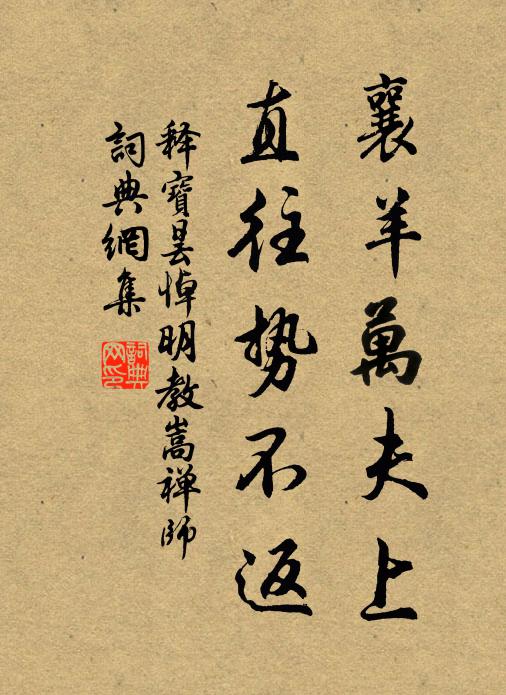 襄羊萬夫上
直往勢不返
释寶曇悼明教嵩禅师
詞典網集
詞典网印